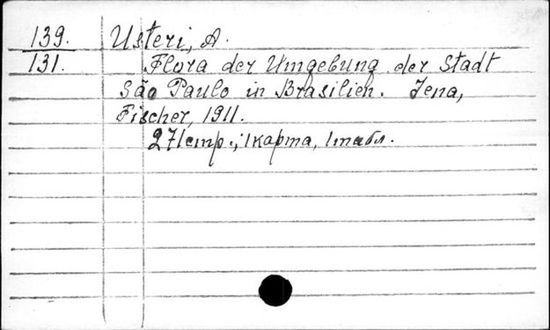 139. Usteri, A.
131. Flora der Umgebung der Stadt
São Paulo in Brasilien. Jena,
Fischer, 1911.
271стр., 1карта, 1табл.